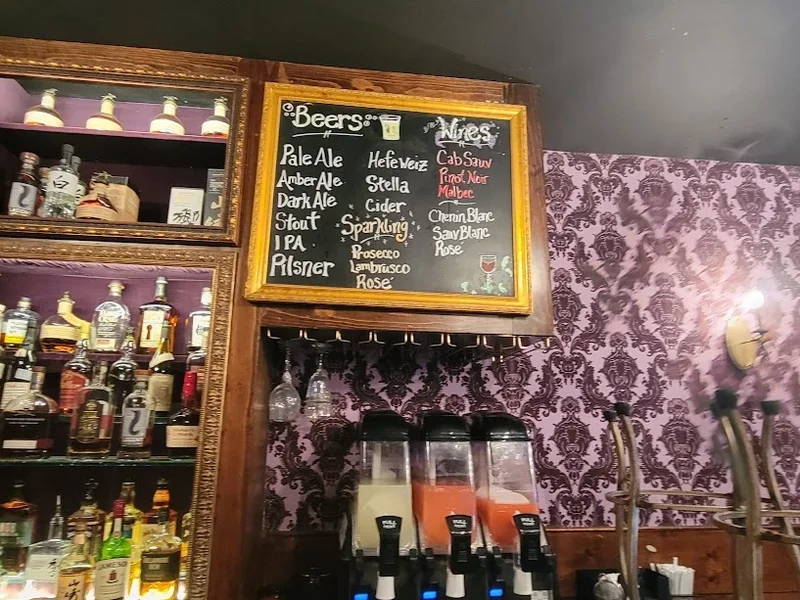 Beers
Pale Ale
Amber Ale
Dark Ale
Stout
IPA
Pilsner
Hefeweiz
Stella
Cider
Sparkling
Prosecco
Lambrusco
Rosé
Wines
Cab Sauv
Pinot Noir
Malbec
Chenin Blanc
Sauv Blanc
Rose
白
JAMESON
PULL
PULL
PULL